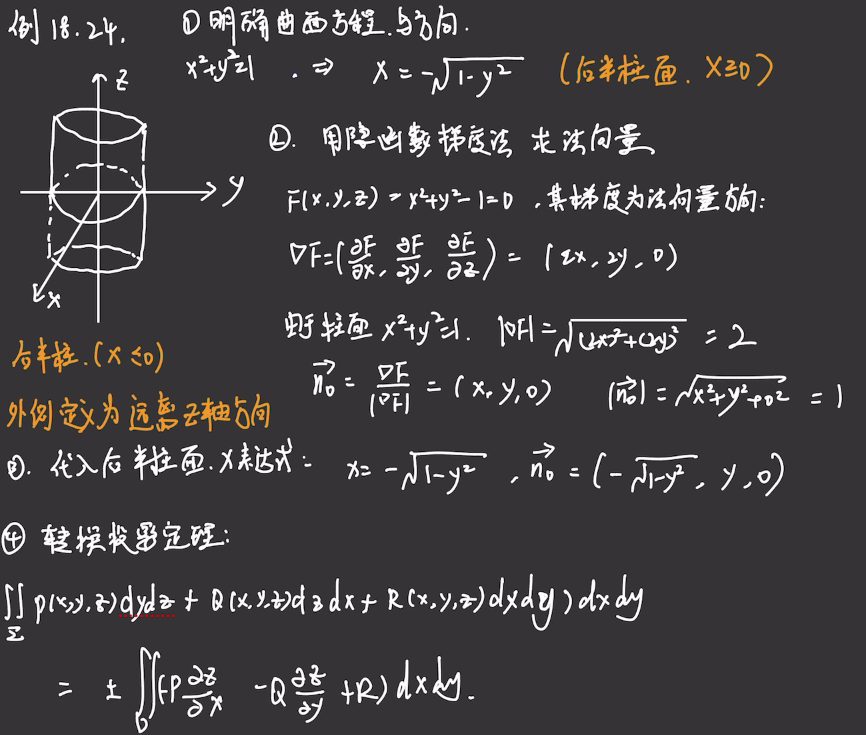 例 18.24.
① 明确曲面方程.与方向.
x²+y²=1 . ⇒ x = -√(1-y²) (后半柱面. x≥0)
z
y
x
②. 用隐函数梯度法 求法向量
F(x,y,z) = x²+y²-1=0 ,其梯度为法向量方向:
∇F=(∂F/∂x, ∂F/∂y, ∂F/∂z) = (2x, 2y, 0)
由于柱面 x²+y²=1. |∇F|=√((2x)²+(2y)²) = 2
后半柱.(x≤0)
n₀→ = ∇F/|∇F| = (x, y, 0) |n₀→| = √(x²+y²+0²) = 1
外侧定义为远离z轴方向
③. 代入后半柱面.x表达式: x= -√(1-y²) , n₀→ = (-√(1-y²), y, 0)
④ 转换投影定理:
∬_Σ P(x,y,z)dydz + Q(x,y,z)dzdx + R(x,y,z)dxdy)dxdy
= ± ∬_D(-P ∂z/∂x -Q ∂z/∂y +R) dxdy.